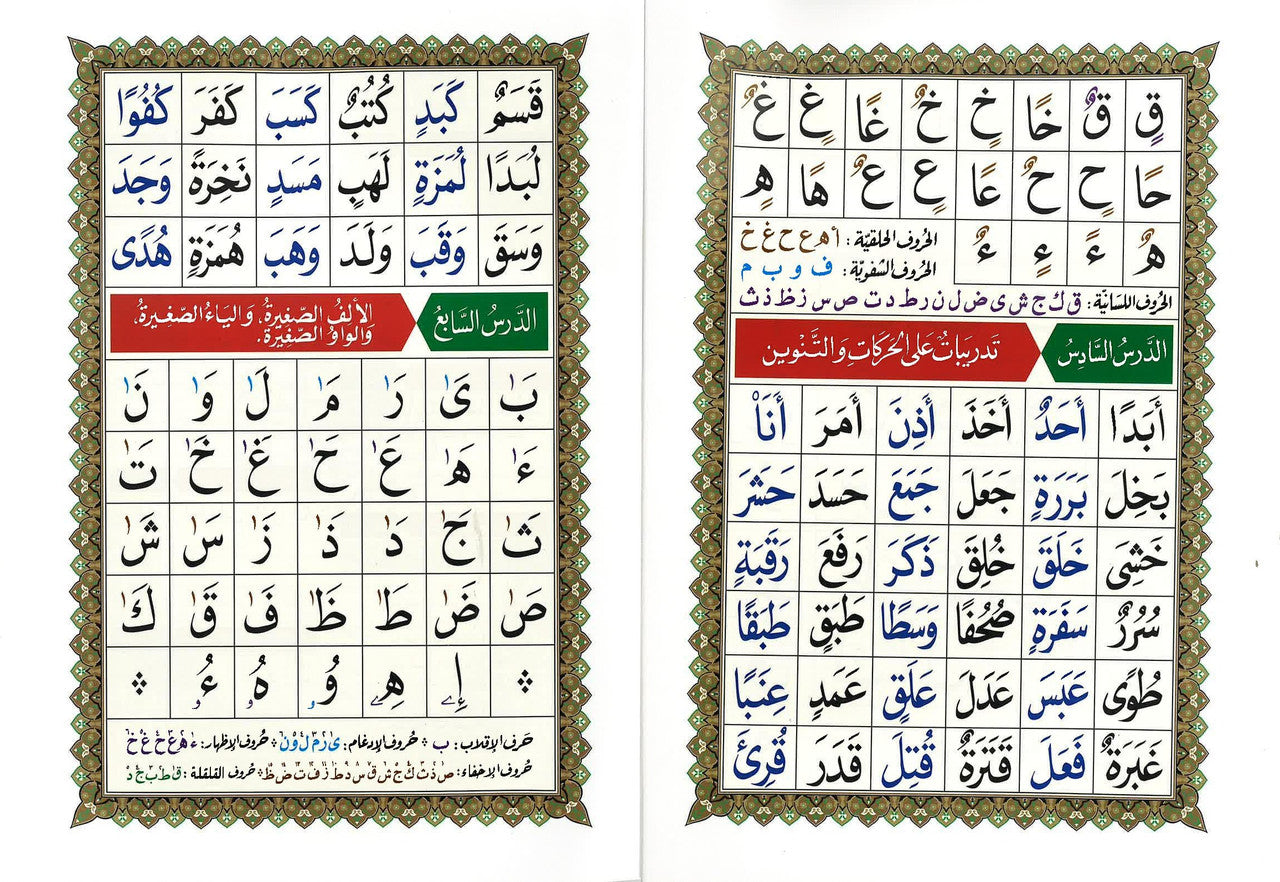 قٍ قٌ خًا خٍ خٌ غًا غٍ غٌ
حًا حٍ حٌ عًا عٍ عٌ هًا هٍ
هٌ ءً ءٍ ءٌ
الحُروف الحلقيّة: أ ه ع ح غ خ
الحُروف الشفويّة: ف و ب م
الحُروف اللسانيّة: ق ك ج ش ى ض ل ن ر ط د ت ص س ز ظ ذ ث
الدَّرسُ السَّادِسُ تَدرِيبَاتٌ عَلى الحَرَكَاتِ وَالتَّنْوِين
أَبَدًا أَحَدٌ أَخَذَ أَذِنَ أَمَرَ أَنَا۠
بَخِلَ بَرَرَةٍ جَعَلَ جَمَعَ حَسَدَ حَشَرَ
خَشِىَ خَلَقَ خُلِقَ ذَكَرَ رَفَعَ رَقَبَةٍ
سُرُرٌ سَفَرَةٍ صُحُفًا وَسَطًا طَبَقٍ طَبَقًا
طُوًى عَبَسَ عَدَلَ عَلَقٍ عَمَدٍ عِنَبًا
غَبَرَةٌ فَعَلَ قَتَرَةٌ قُتِلَ قَدَرَ قُرِئَ
قَسَمٌ كَبَدٍ كُتُبٌ كَسَبَ كَفَرَ كُفُوًا
لُبَدًا لُمَزَةٍ لَهَبٍ مَسَدٍ نَخِرَةً وَجَدَ
وَسَقَ وَقَبَ وَلَدَ وَهَبَ هُمَزَةٍ هُدًى
الدَّرسُ السَّابعُ الألِفُ الصَّغِيرةُ، وَاليَاءُ الصَّغِيرةُ،
وَالوَاوُ الصَّغِيرَةُ.
بَٰ ىَٰ رَٰ مَٰ لَٰ وَٰ نَٰ
ءَٰ هَٰ عَٰ حَٰ غَٰ خَٰ تَٰ
ثَٰ جَٰ دَٰ ذَٰ زَٰ سَٰ شَٰ
صَٰ ضَٰ طَٰ ظَٰ فَٰ قَٰ كَٰ
إِۦ هِۦ وُۥ هُۥ ءُۥ
حَرف الإقلاب: ب حُروف الإدغام: ى ر م ل و ن حُروف الإظهار: ء ه ع ح غ خ
حُروف الإخفاء: ص ذ ث ك ج ش ق س د ط ز ف ت ض ظ حُروف القلقلة: ق ط ب ج د